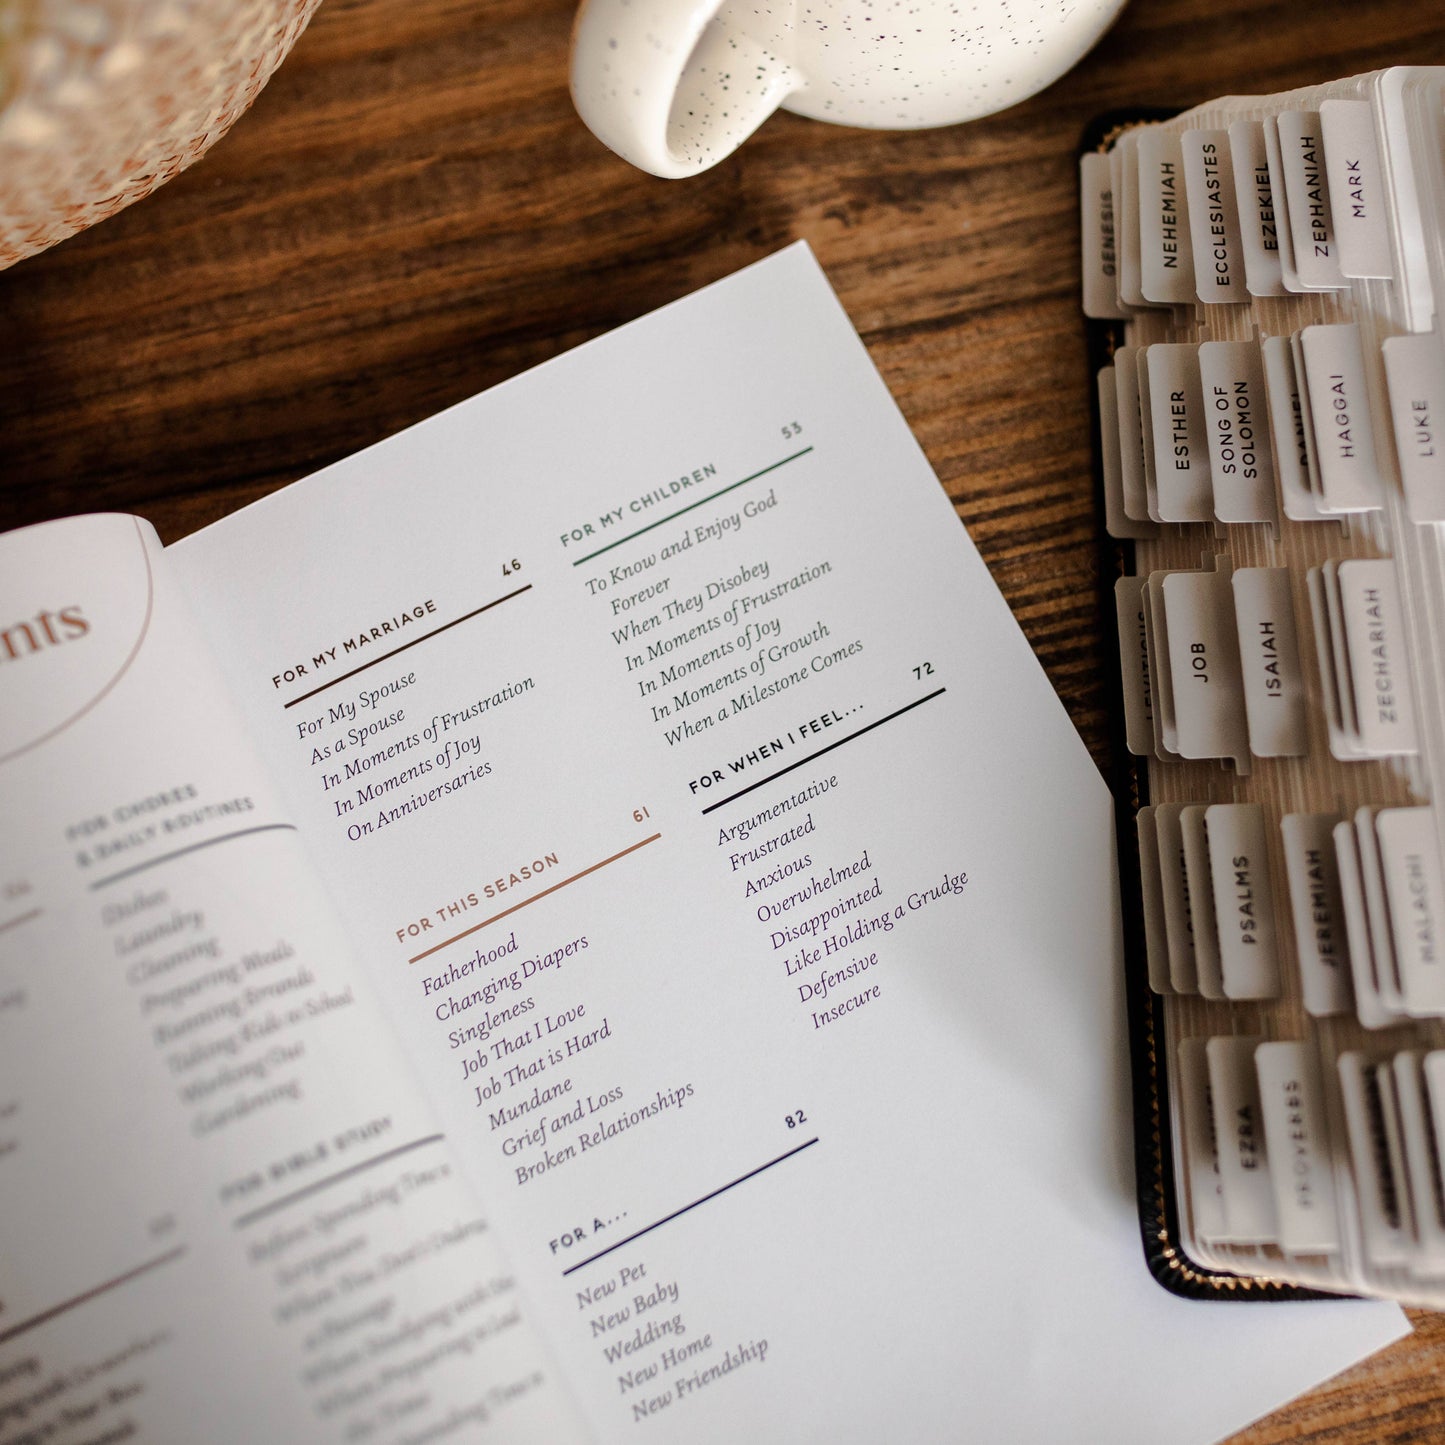 nts
FOR CHORES
& DAILY ROUTINES
Dishes
Laundry
Cleaning
Preparing Meals
Running Errands
Taking Kids to School
Working Out
Gardening
FOR BIBLE STUDY
Before Spending Time in
Scripture
FOR MY MARRIAGE 46
For My Spouse
As a Spouse
In Moments of Frustration
In Moments of Joy
On Anniversaries
FOR THIS SEASON 61
Fatherhood
Changing Diapers
Singleness
Job That I Love
Job That is Hard
Mundane
Grief and Loss
Broken Relationships
FOR A... 82
New Pet
New Baby
Wedding
New Home
New Friendship
FOR MY CHILDREN 53
To Know and Enjoy God
Forever
When They Disobey
In Moments of Frustration
In Moments of Joy
In Moments of Growth
When a Milestone Comes
FOR WHEN I FEEL... 72
Argumentative
Frustrated
Anxious
Overwhelmed
Disappointed
Like Holding a Grudge
Defensive
Insecure
GENESIS
NEHEMIAH
ECCLESIASTES
EZEKIEL
ZEPHANIAH
MARK
ESTHER
SONG OF
SOLOMON
DANIEL
HAGGAI
LUKE
LEVITICUS
JOB
ISAIAH
ZECHARIAH
PSALMS
JEREMIAH
MALACHI
EZRA
PROVERBS